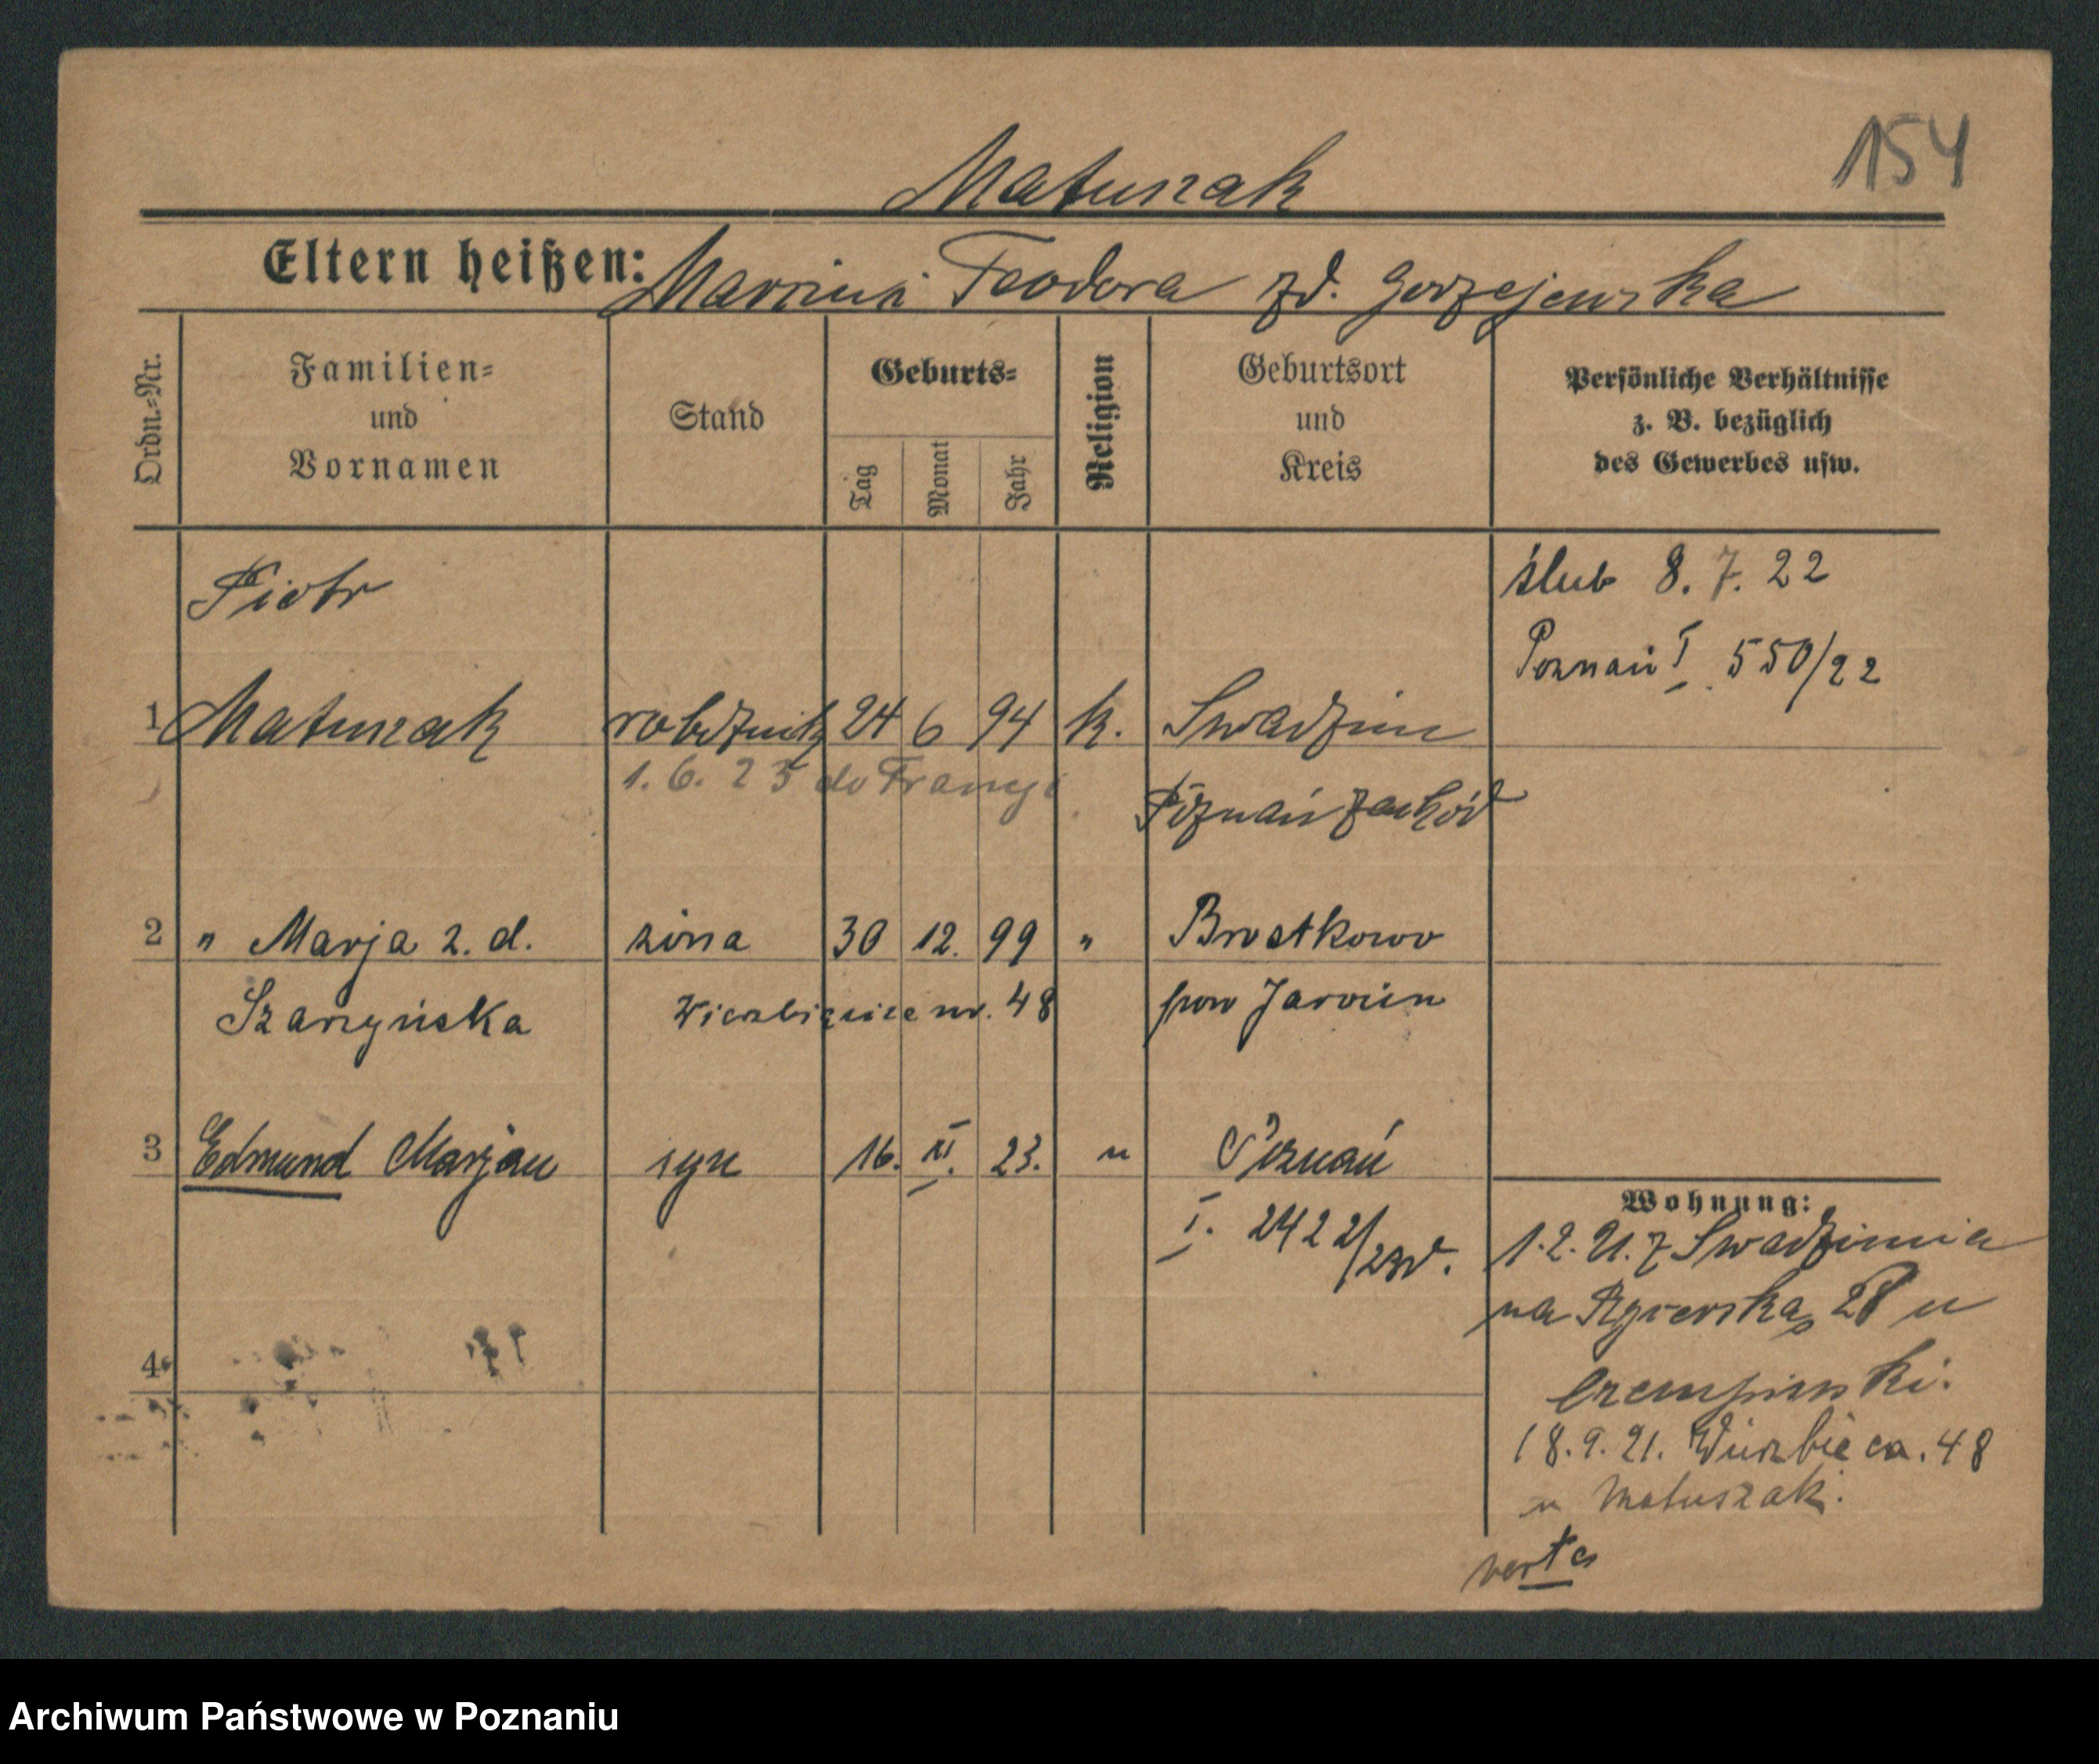 154
Matuszak
Eltern heißen: Marcin i Teodora zd. Gorzejewska
Ordn.=Nr.
Familien=
und
Vornamen
Stand
Geburts=
Tag
Monat
Jahr
Religion
Geburtsort
und
Kreis
Persönliche Verhältnisse
z. B. bezüglich
des Gewerbes usw.
Piotr
ślub 8. 7. 22
Poznań I 550/22
1 Matuszak robotnik 24 6 94 k. Swadzim
1. 6. 23 do Francji
Poznań zachód
2 " Marja z. d. żona 30 12. 99 " Brzostkowo
Szarzyńska nr. 48 pow Jarocin
3 Edmund Marjan syn 16. XI. 23. " Poznań
I. 2422/23
Wohnung:
1. 2. 21. z Swadzimia
na 28 u
Czempiński.
4
18. 9. 21. Wierzbięca. 48
u Matuszak.
verte
Archiwum Państwowe w Poznaniu